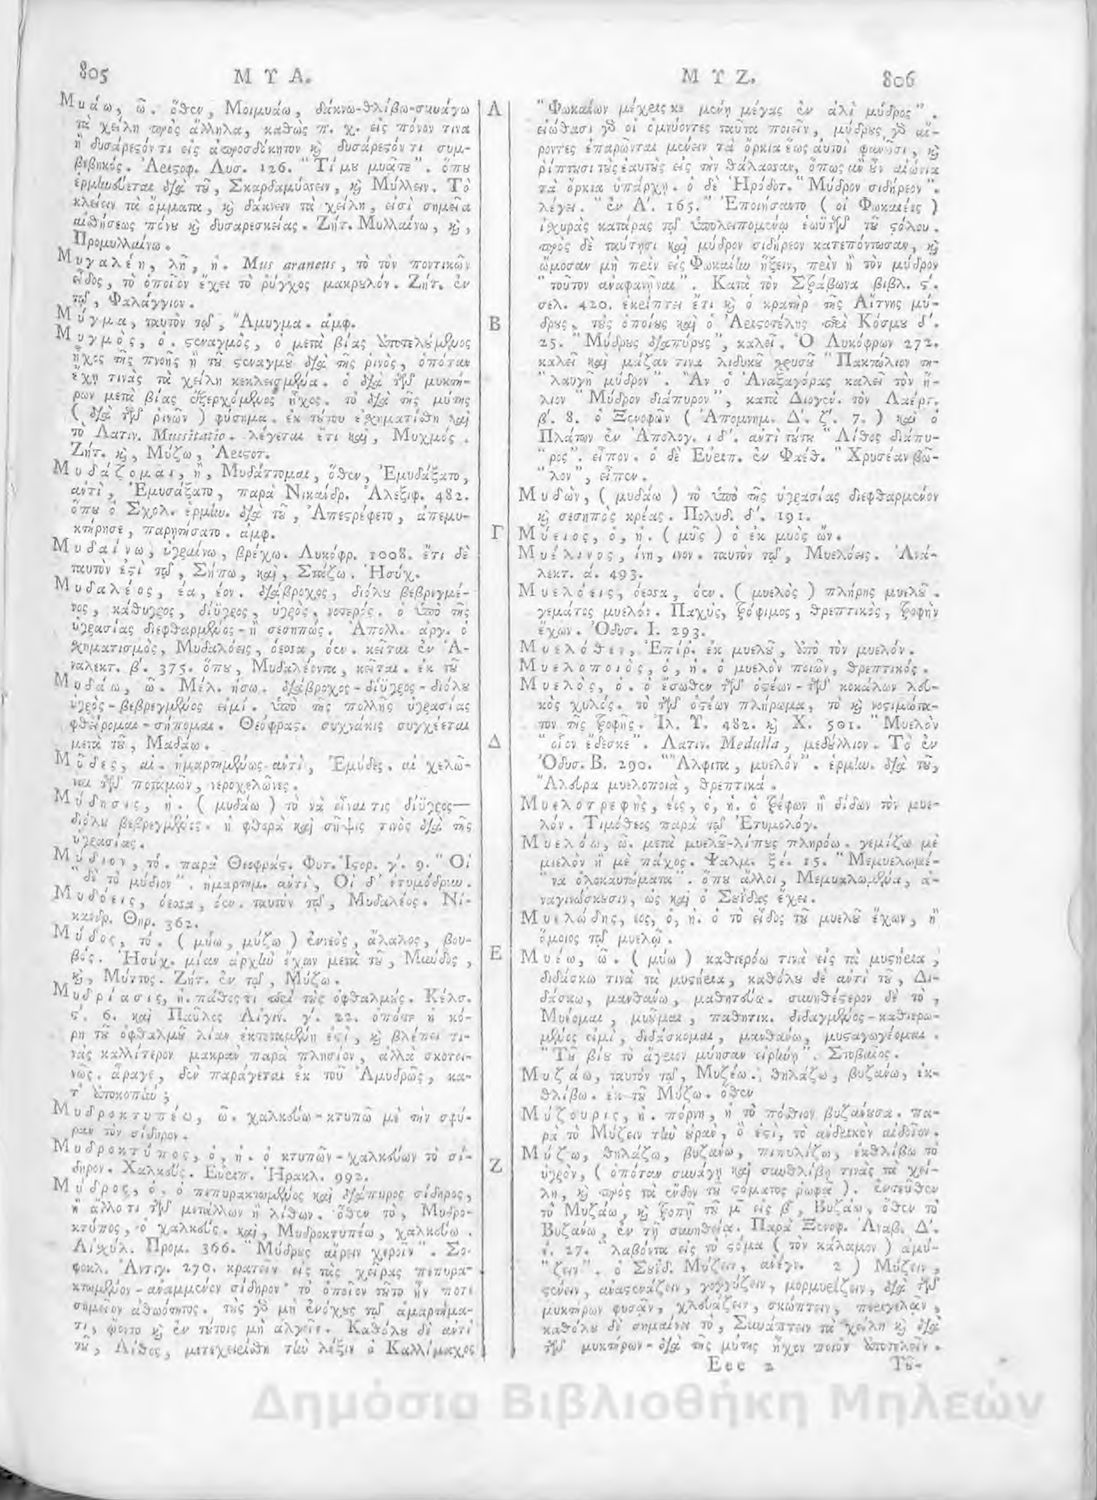 805
Μ Υ Α.
Μυάω, ῶ. ὅθεν, Μοιμυάω, δάκνω-θλίβω-συνάγω
τὰ χείλη πρὸς ἄλληλα, καθὼς π. χ. εἰς πόνον τινα
ἢ δυσάρεςόν τι εἰς ἀπροσδόκητον κ δυσάρεςόν τι συμ-
βεβηκός. Ἀριςοφ. Λυσ. 126. "Τί μυ μυᾶτε". ὅπυ
ἑρμηνεύεται διὰ τῦ, Σκαρδαμύσσειν, κ Μύλλειν. Τὸ
κλείειν τὰ ὄμματα, κ δάκνειν τὰ χείλη, εἰσὶ σημεῖα
αἰσθήσεως πόνυ κ δυσαρεσκείας. Ζήτ. Μυλλαίνω, κ,
Προμυλλαίνω.
Μυγαλέη, λῆ, ἡ. Mus araneus, τὸ τὸν ποντικῶν
εἶδος, τὸ ὁποῖον ἔχει τὸ ρύγχος μακρυλόν. Ζήτ. ἐν
τῷ, Φαλάγγιον.
Μύγμα, ταυτὸν τῷ, Ἄμυγμα. ἀμφ.
Μυγμὸς, ὁ. ςεναγμὸς, ὁ μετὰ βίας ἀποτελύμενος
ἦχος τῆς πνοῆς ἢ τῦ ςεναγμῦ διὰ τῆς ρινὸς, ὁπόταν
ἔχῃ τινὰς τὰ χείλη κεκλεισμένα. ὁ διὰ τῶν μυκτή-
ρων μετὰ βίας ἐξερχόμενος ἦχος. τὸ διὰ τῆς μύτης
( διὰ τῶν ρινῶν ) φύσημα. ἐκ τύτυ ἐσχηματίσθη καὶ
τὸ Λατιν. Mussitatio. λέγεται ἔτι καὶ, Μυχμός.
Ζήτ. κ, Μύζω, Ἀριςοτ.
Μυδάζομαι, ἢ, Μυδάττομαι, ὅθεν, Ἐμυδάξατο,
ἀντὶ, Ἐμυσάξατο, παρὰ Νικάνδρ. Ἀλεξιφ. 482.
ὅπυ ὁ Σχολ. ἑρμην. διὰ τῦ, Ἀπεςρέφετο, ἀπεμυ-
κτήρησε, παρῃτήσατο. ἀμφ.
Μυδαίνω, ὑγραίνω, βρέχω. Λυκόφρ. 1008. ἔτι δὲ
ταυτόν ἐςὶ τῷ, Σήπω, καὶ, Στάζω. Ἡσύχ.
Μυδαλέος, έα, έον. διάβροχος, διόλυ βεβρεγμέ-
νος, κάθυγρος, δίυγρος, ὑγρός, νοτερός. ὁ ὑπὸ τῆς
ὑγρασίας διεφθαρμένος-ἢ σεσηπώς. Ἀπολλ. ἀργ. ὁ
σχηματισμὸς, Μυδαλόεις, όεσσα, όεν. κεῖται ἐν Ἀ-
ναλεκτ. β'. 375. ὅπυ, Μυδαλέοντα, κεῖται. ἐκ τῦ
Μυδάω, ῶ. Μέλ. ήσω. διάβροχος-δίυγρος-διόλυ
ὑγρὸς-βεβρεγμένος εἰμί. ὑπὸ τῆς πολλῆς ὑγρασίας
φθείρομαι-σήπομαι. Θεόφρας. συχνάκις συγχέεται
μετὰ τῦ, Μαδάω.
Μύδες, αἱ. ἡμαρτημένως ἀντὶ, Ἐμύδες. αἱ χελῶ-
ναι τῶν ποταμῶν, νεροχελῶνες.
Μύδησις, ἡ. ( μυδάω ) τὸ νὰ εἶναι τις δίυγρος—
διόλυ βεβρεγμένος. ἡ φθορὰ καὶ σῆψις τινὸς διὰ τῆς
ὑγρασίας.
Μύδιον, τό. παρὰ Θεοφράς. Φυτ. Ἱςορ. γ'. 9. "Οἱ
"δὲ τὸ μύδιον". ἡμαρτημ. ἀντὶ, Οἱ δ' ἐτυμόδρυν.
Μυδόεις, όεσσα, όεν. ταυτὸν τῷ, Μυδαλέος. Νί-
κανδρ. Θηρ. 362.
Μύδος, τό. ( μύω, μύζω ) ἐννεὸς, ἄλαλος, βου-
βός. Ἡσύχ. μίαν ἀρχὴν ἔχων μετὰ τῦ, Μωύδος,
κ, Μύττος. Ζήτ. ἐν τῷ, Μύζω.
Μυδρίασις, ἡ. πάθος τι περὶ τὺς ὀφθαλμύς. Κέλσ.
ς'. 6. καὶ Παῦλος Αἰγιν. γ'. 22. ὁπόταν ἡ κό-
ρη τῦ ὀφθαλμῦ λίαν ἐκτεταμένη ἐςὶ, κ βλέπει τι-
νὰς καλλίτερον μακρὰν παρὰ πλησίον, ἀλλὰ σκοτει-
νῶς. ἆραγε, δὲν παράγεται ἐκ τοῦ Ἀμυδρῶς, κα-
τ' ἀποκοπὴν;
Μυδροκτυπέω, ῶ. χαλκεύω-κτυπῶ μὲ τὴν σφύ-
ραν τὸν σίδηρον.
Μυδροκτύπος, ὁ, ἡ. ὁ κτυπῶν-χαλκεύων τὸ σί-
δηρον. Χαλκεύς. Εὐριπ. Ἡρακλ. 992.
Μύδρος, ὁ. ὁ πεπυρακτωμένος καὶ διάπυρος σίδηρος,
ἢ ἄλλο τι τῶν μετάλλων ἢ λίθων. ὅθεν τὸ, Μυδρο-
κτύπος, ὁ χαλκεύς. καὶ, Μυδροκτυπέω, χαλκεύω.
Αἰσχύλ. Προμ. 366. "Μύδρυς αἴρειν χεροῖν". Σο-
φοκλ. Ἀντιγ. 270. κρατεῖν εἰς τὰς χεῖρας πεπυρα-
κτωμένον-ἀναμμένον σίδηρον· τὸ ὁποῖον τῦτο ἦν ποτὲ
σημεῖον ἀθωότητος. τὺς γὰρ μὴ ἐνόχυς τῷ ἁμαρτήμα-
τι, ᾤοντο κ ἐν τύτοις μὴ ἀλγεῖν. Καθόλυ δὲ ἀντὶ
τῦ, Λίθος, μετεχειρίσθη τὴν λέξιν ὁ Καλλίμαχος
Α
Β
Γ
Δ
Ε
Ζ
Μ Υ Ζ.
806
"Φωκαίων μέχρις κε μένῃ μέγας ἐν ἁλὶ μύδρος".
εἰώθασι γὰρ οἱ ὀμνύοντες ταῦτα ποιεῖν, μύδρυς γὰρ αἴ-
ροντες ἐπαρῶνται μένειν τὰ ὅρκια ἕως αὐτοὶ φανῶσι, κ
ρίπτυσι τὺς ἑαυτῦς εἰς τὴν θάλασσαν, ὅπως αὖ ἂν αἰώνια
τὰ ὅρκια ὑπάρχῃ. ὁ δὲ Ἡρόδοτ. "Μύδρον σιδήρεον".
λέγει. "ἐν Α'. 165." "Ἐποιήσαντο ( οἱ Φωκαιέες )
ἰσχυρὰς κατάρας τῷ ὑπολειπομένῳ ἑωϋτῶν τῦ ςόλου.
πρὸς δὲ ταύτῃσι καὶ μύδρον σιδήρεον κατεπόντωσαν, κ
ὤμοσαν μὴ πρὶν εἰς Φωκαίην ἥξειν, πρὶν ἢ τὸν μύδρον
"τοῦτον ἀναφανῆναι". Κατὰ τὸν Στράβωνα βιβλ. ς'.
σελ. 420. ἐκρίπτει ἔτι κ ὁ κρατὴρ τῆς Αἴτνης μύ-
δρυς, τὺς ὁποίυς καὶ ὁ Ἀριςοτέλης περὶ Κόσμυ δ'.
25. "Μύδρυς διαπύρυς", καλεῖ. Ὁ Λυκόφρων 272.
καλεῖ καὶ μάζαν τινα λιδυκῦ χρυσῦ "Πακτώλιον τη-
"λαυγῆ μύδρον". Ἂν ὁ Ἀναξαγόρας καλεῖ τὸν ἥ-
λιον "Μύδρον διάπυρον", κατὰ Διογέν. τὸν Λαέρτ.
β'. 8. ὁ Ξενοφῶν ( Ἀπομνημ. Δ'. ζ'. 7. ) καὶ ὁ
Πλάτων ἐν Ἀπολογ. ιδ'. ἀντὶ τύτυ "Λίθος διάπυ-
"ρος". εἶπον. ὁ δὲ Εὐριπ. ἐν Φαέθ. "Χρυσέαν βῶ-
"λον", εἶπεν.
Μυδὼν, ( μυδάω ) τὸ ὑπὸ τῆς ὑγρασίας διεφθαρμένον
κ σεσηπὸς κρέας. Πολυδ. δ'. 191.
Μύειος, ὁ, ἡ. ( μῦς ) ὁ ἐκ μυὸς ὤν.
Μυέλινος, ίνη, ινον. ταυτὸν τῷ, Μυελόεις. Ἀνά-
λεκτ. ά. 493.
Μυελόεις, όεσσα, όεν. ( μυελὸς ) πλήρης μυελῦ.
γεμάτος μυελόν. Παχὺς, τρόφιμος, θρεπτικὸς, τροφὴν
ἔχων. Ὀδυσ. Ι. 293.
Μυελόθεν, Ἐπίῤ. ἐκ μυελῦ, ἀπὸ τὸν μυελόν.
Μυελοποιὸς, ὁ, ἡ. ὁ μυελὸν ποιῶν, θρεπτικός.
Μυελὸς, ὁ. ὁ ἔσωθεν τῶν ὀςέων-τῶν κοκάλων λευ-
κὸς χυλός. τὸ τῶν ὀςέων πλήρωμα, τὸ κ νοςιμώτα-
τον τῆς τροφῆς. Ἰλ. Υ. 482. κ Χ. 501. "Μυελὸν
"οἶον ἔδεσκε". Λατιν. Medulla, μεδύλλιον. Τὸ ἐν
Ὀδυσ. Β. 290. "Ἄλφιτα, μυελόν". ἑρμην. διὰ τῦ,
Ἄλευρα μυελοποιὰ, θρεπτικά.
Μυελοτρεφὴς, έες, ὁ, ἡ. ὁ τρέφων ἢ δίδων τὸν μυε-
λόν. Τιμόθεος παρὰ τῷ Ἐτυμολόγ.
Μυελόω, ῶ. μετὰ μυελῦ-λίπυς πληρόω. γεμίζω μὲ
μιελὸν ἢ μὲ πάχος. Ψαλμ. ξέ. 15. "Μεμυελωμέ-
"να ὁλοκαυτώματα". ὅπυ ἄλλοι, Μεμυκλωμένα, ἀ-
ναγινώσκυσιν, ὡς καὶ ὁ Συΐδας ἔχει.
Μυελώδης, εος, ὁ, ἡ. ὁ τὸ εἶδος τῦ μυελῦ ἔχων, ἢ
ὅμοιος τῷ μυελῷ.
Μυέω, ῶ. ( μύω ) καθιερόω τινὰ εἰς τὰ μυςήρια,
διδάσκω τινὰ τὰ μυςήρια, καθόλυ δὲ ἀντὶ τῦ, Δι-
δάσκω, μανθάνω, μαθητεύω. συνηθέςερον δὲ τὸ,
Μυέομαι, μυῦμαι, παθητικ. διδαγμένος-καθιερω-
μένος εἰμὶ, διδάσκομαι, μανθάνω, μυςαγωγέομαι.
"Τῦ βίυ τὸ ἄγριον μύησαν εἰρήνῃ". Στοβαῖος.
Μυζάω, ταυτὸν τῷ, Μυζέω. θηλάζω, βυζάνω, ἐκ-
θλίβω. ἐκ τῦ Μύζω. ὅθεν
Μύζουρις, ἡ. πόρνη, ἡ τὸ πόσθιον βυζάνυσα. πα-
ρὰ τὸ Μύζειν τὴν υρὰν, ὅ ἐςὶ, τὸ ἀνδρικὸν αἰδοῖον.
Μύζω, θηλάζω, βυζάνω, πιπυλίζω, ἐκθλίβω τὸ
ὑγρὸν, ( ὁπόταν συνάγῃ καὶ συνθλίβῃ τινὰς τὰ χεί-
λη, κ πρὸς τὰ ἔνδον τῦ ςόματος ρωφᾷ ). ἐντεῦθεν
τὸ Μυζάω, κ τροπῇ τῦ μ εἰς β, Βυζάω, ὅθεν τὸ
Βυζάνω, ἐν τῇ συνηθείᾳ. Παρὰ Ξενοφ. Ἀναβ. Δ'.
έ. 27. "λαβόντα εἰς τὸ ςόμα ( τὸν κάλαμον ) ἀμύ-
"ζειν". ὁ Συΐδ. Μύζειν, ἀνέγν. 2 ) Μύζειν,
ςένειν, ἀναςενάζειν, γογγύζειν, μορμυρίζειν, διὰ τῶν
μυκτήρων φυσᾶν, χλευάζειν, σκώπτειν, περιγελᾶν,
καθόλυ δὲ σημαίνει τὸ, Συνάπτειν τὰ χείλη κ διὰ
τῶν μυκτήρων-διὰ τῆς μύτης ἦχον ποιὸν ἀποτελεῖν.
Eee 2
Τῦ-
Δημόσια Βιβλιοθήκη Μηλεών